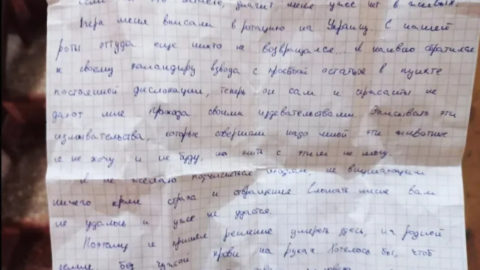 это значит меня уже нет в живых.
Вчера меня вписали в ротацию на Украину С нашей
роты оттуда еще никто не возвращался... Я наивно обратился
к своему командиру взвода с просьбой остаться в пункте
постоянной дислокации, теперь он сам и
дают мне прохода своими издевательствами. Описывать эти
издевательства, которые совершали надо мной эти животные
я не хочу и не буду, но жить с этим не могу.
Я не желаю подчиняться людям, не внушающим
ничего кроме страха и отвращения Сломать меня вам
не удалось и уже не удастся.
Поэтому я принял решение умереть здесь, на родной
земле без чужой крови на руках Хотелось бы, чтоб